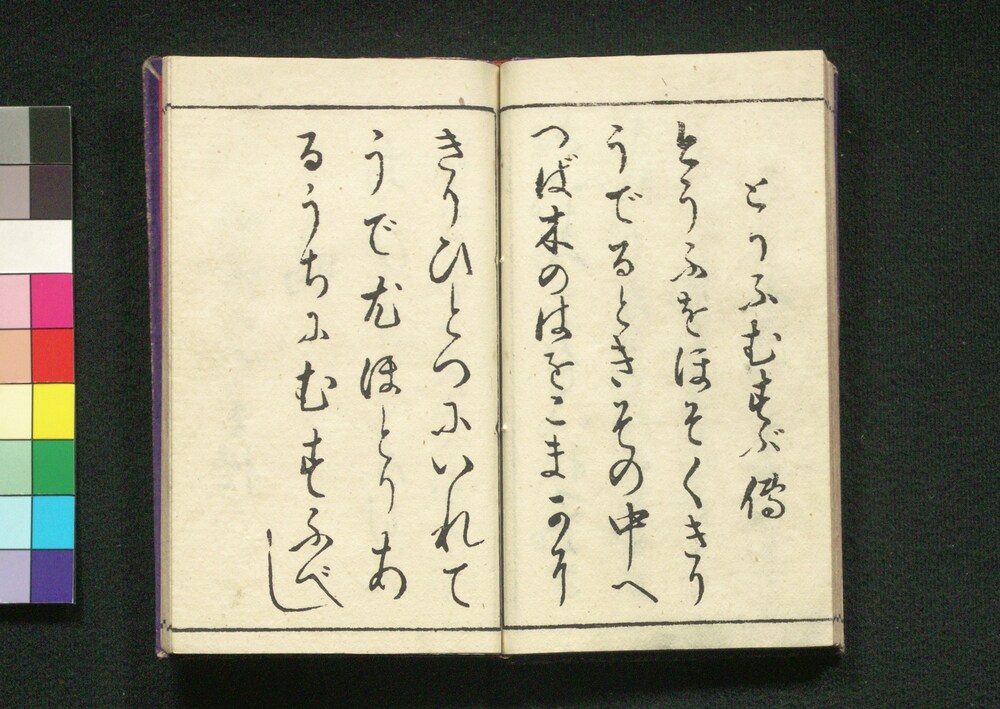 とうふむすぶ傳
とうふをほそくきり
うでるときその中へ
つば木のはをこまかに
きりひとつにいれて
うで尤ほとりあ
るうちにむすふべし